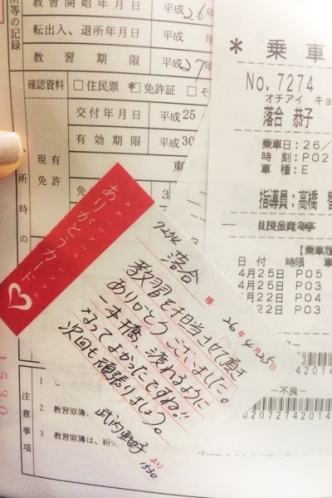 所等の記録
教習開始年月日
平成26年
転出入、退所年月日
平成
教習期限
平成27
確認資料
□住民票
免許証
□そ
交付年月日
平成25
有効期限
平成30
現有
免許
所時の
＊ 乗車
No. 7274
オチアイ キョ
落合 恭子
乗車日:26/
時限:P02
車種:E
指導員:高橋
乗車履
日付 時限 車
4月25日 P05
4月25日 P03
4月22日 P04
4月22日 P03
ありがとうカード
7274 落合 様 26年4月25日
教習を担当させて頂き
ありがとうございました。
一本橋、渡れるように
なってよかったですね!!
次回も頑張りましょう。
より
1530
注意事項
1
2 教習原簿、
3 教習原簿は、紛
―不良―
1530